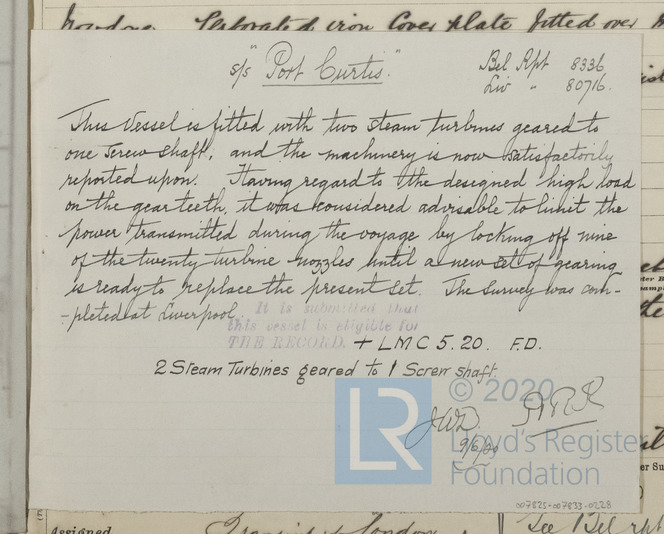 Perforated iron Cover plate fitted over
S/S "Port Curtis."
Bel Rpt 8336
Liv " 80716.
This Vessel is fitted with two steam turbines geared to
one screw shaft, and the machinery is now satisfactorily
reported upon. Having regard to the designed high load
on the gear teeth, it was considered advisable to limit the
power transmitted during the voyage by locking off nine
of the twenty turbine nozzles until a new set of gearing
is ready to replace the present set. The survey was com-
-pleted at Liverpool.
It is submitted that
this vessel is eligible for
THE RECORD. + LMC 5.20. F.D.
2 Steam Turbines geared to 1 Screw shaft.
© 2020
LR
Lloyd's Register
Foundation
JWD.
9/6/20
007825-007833-0228
Assigned
London
See Bel rpt